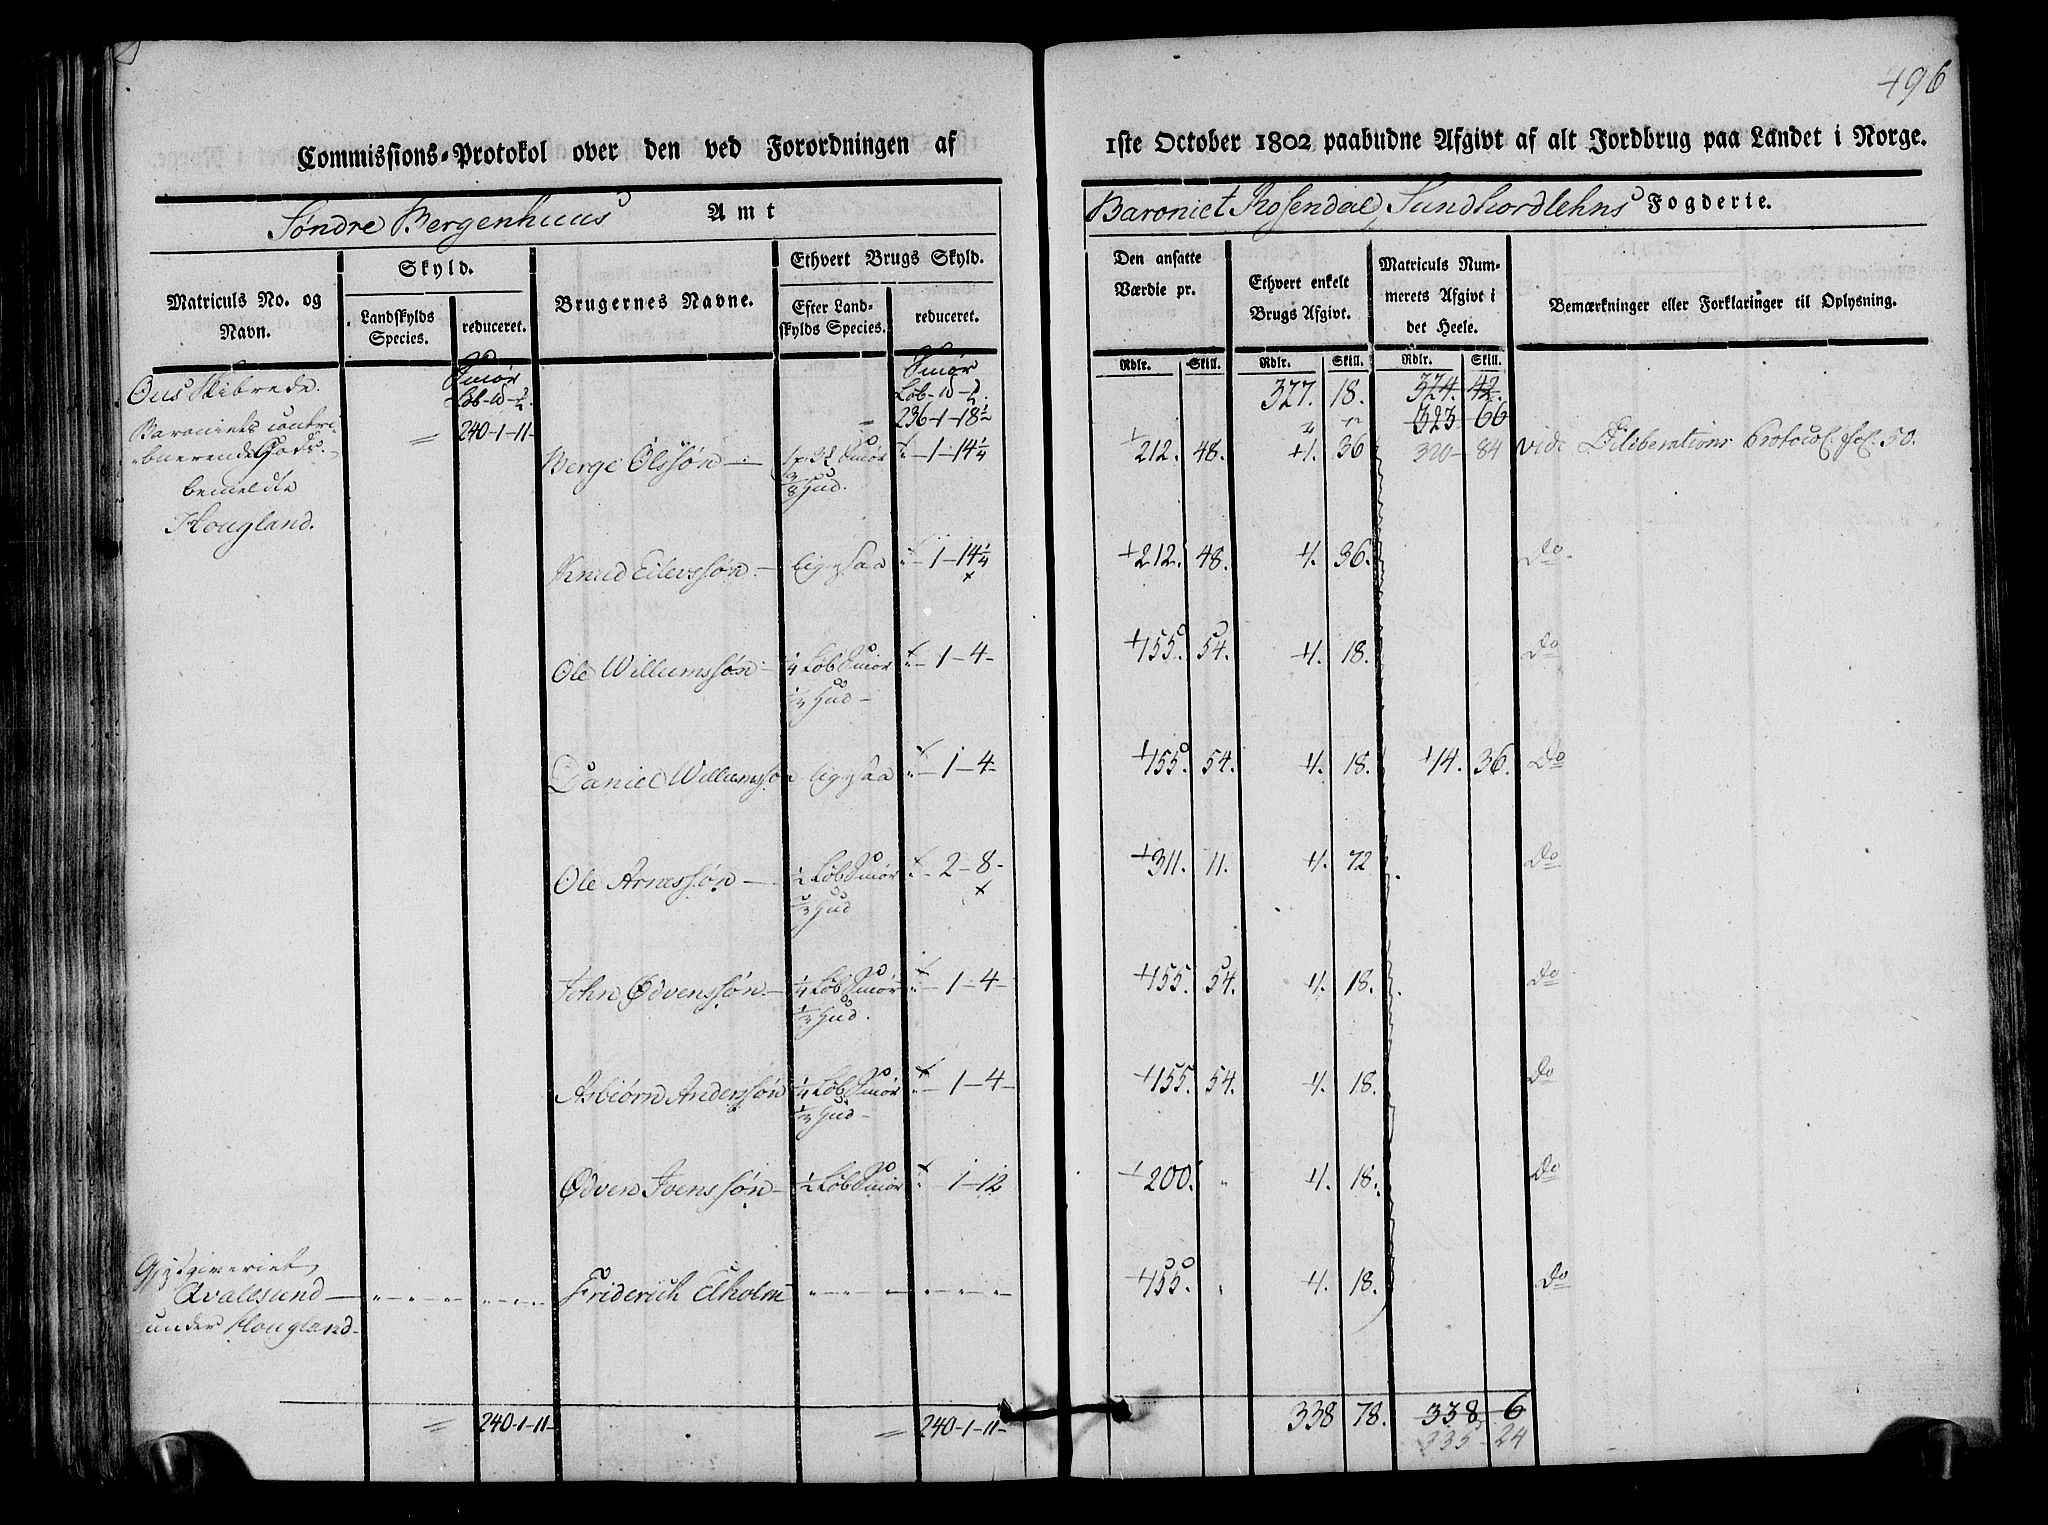 496
Commissions-Protokol over den ved Forordningen af 1ste October 1802 paabudne Afgivt af alt Jordbrug paa Landet i Norge.
Søndre Bergenhuus Amt Baroniet Rosendal, Sundhordlehns Fogderie.
Matriculs No. og Navn. Skyld. Landskylds Species. reduceret. Brugernes Navne. Ethvert Brugs Skyld. Efter Landskylds Species. reduceret. Den ansatte Værdie pr. Ethvert enkelt Brugs Afgivt. Matriculs Nummerets Afgivt i det Heele. Bemærkninger eller Forklaringer til Oplysning.
Rdlr. Skill. Rdlr. Skill. Rdlr. Skill.
Ous Skibrede. Smør Smør 377. 18. 374. 42.
Baroniets contri- 240-1-11- 236-1-18½ 323 66
buerende Gods.
bemeldte
Hougland.
Berge Olssøn — Smør 3/8 Hud. 1-14¼ 212. 48. 1. 36 320 84 vide Deliberations Protocol. fol. 50.
Knud Eilerssøn — ligesaa 1-14¼ 212. 48. 1. 36. Do
Ole Willumssøn — ¼ Løb Smør ½ Hud — 1-4- 155. 54. 1. 18. Do
Daniel Willumssøn ligesaa 1-4- 155. 54. 1. 18. 14. 36. Do
Ole Arnessøn — ½ Løb Smør Hud 2-8- 311. 11. 1. 72 Do
John Ødvenssøn — ¼ Løb Smør Hud. 1-4- 155. 54. 1. 18. Do
Asbiørn Anderssøn ¼ Løb Smør Hud — 1-4- 155. 54. 1. 18. Do
Ødven Ivenssøn — ½ Løb Smør 1-12 200. 1. 18. Do
Gjestgiveriet
Qvalesund — Friderich Elholm 155. 1. 18. Do
under Hougland.
240-1-11- 240-1-11- 338 78. 338 6
335-24